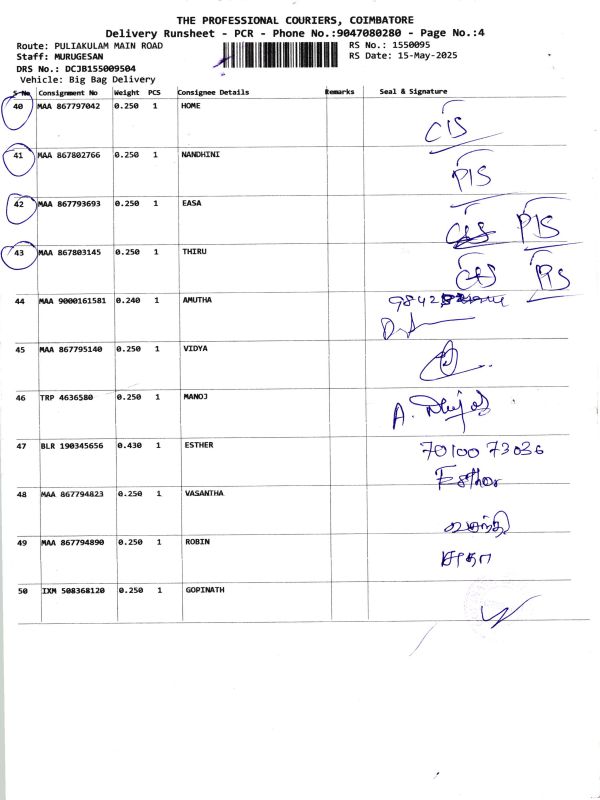 THE PROFESSIONAL COURIERS, COIMBATORE
Delivery Runsheet - PCR - Phone No.:9047080280 - Page No.:4
Route: PULIAKULAM MAIN ROAD RS No.: 1550095
Staff: MURUGESAN RS Date: 15-May-2025
DRS No.: DCJB155009504
Vehicle: Big Bag Delivery
S No Consignment No Weight PCS Consignee Details Remarks Seal & Signature
40 MAA 867797042 0.250 1 HOME
CIS
41 MAA 867802766 0.250 1 NANDHINI
PIS
42 MAA 867793693 0.250 1 EASA
PIS
43 MAA 867803145 0.250 1 THIRU
PIS
44 MAA 9000161581 0.240 1 AMUTHA
45 MAA 867795140 0.250 1 VIDYA
46 TRP 4636580 0.250 1 MANOJ
47 BLR 190345656 0.430 1 ESTHER 70100 73036
Esther
48 MAA 867794823 0.250 1 VASANTHA
வசந்தி
49 MAA 867794890 0.250 1 ROBIN
50 IXM 508368120 0.250 1 GOPINATH